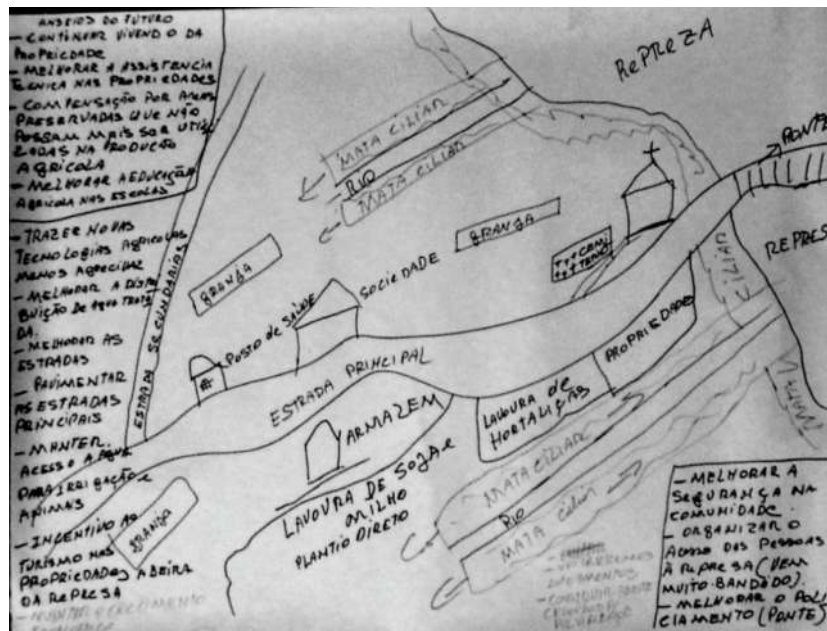 ANSEIOS DO FUTURO
- CONTINUAR VIVENDO DA
PROPRIEDADE
- MELHORAR A ASSISTENCIA
TECNICA NAS PROPRIEDADES
- COMPENSAÇÃO POR AREAS
PRESERVADAS QUE NÃO
POSSAM MAIS SER UTILI
ZADAS NA PRODUÇÃO
AGRÍCOLA
- MELHORAR A EDUCAÇÃO
AGRICOLA NAS ESCOLAS
- TRAZER NOVAS
TECNOLOGIAS AGRICOLAS
MENOS
- MELHORAR A DISTRI
BUIÇÃO DE AGUA TRATA
DA.
- MELHORAR AS
ESTRADAS
- PAVIMENTAR
AS ESTRADAS
PRINCIPAIS
- MANTER
ACESSO A AGUA
PARA IRRIGAÇÃO e
ANIMAIS
- INCENTIVO AO
TURISMO NAS
PROPRIEDADES A BEIRA
DA REPRESA
ESTRADA SECUNDARIAS
REPREZA
MATA CILIAR
RIO
MATA CILIAR
PONTE
GRANGA
GRANGA
CEMI
TERIO
REPRESA
SOCIEDADE
POSTO de SAÚDE
ESTRADA PRINCIPAL
PROPRIEDADES
CILIAR
MATA
LAVOURA de
HORTALIÇAS
ARMAZEM
LAVOURA DE SOJA e
MILHO
PLANTIO DIRETO
GRANGA
MATA CILIAR
RIO
MATA CILIAR
- MELHORAR A
SEGURANÇA NA
COMUNIDADE.
- ORGANIZAR O
ACESSO DAS PESSOAS
À REPRESA (VEM
MUITO BANDIDO).
- MELHORAR O POLI
CIAMENTO (PONTE)